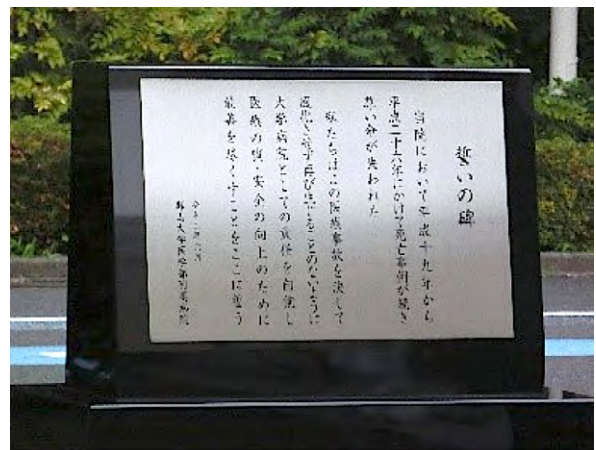 誓いの碑
当院において平成十九年から
平成二十六年にかけて死亡事例が続き
尊い命が失われた
私たちはこの医療事故を決して
再び ことのないように
大学病院としての責任を自覚し
医療の質・安全の向上のために
最善を尽くすことをここに誓う
令和 月
群馬大学医学部附属病院